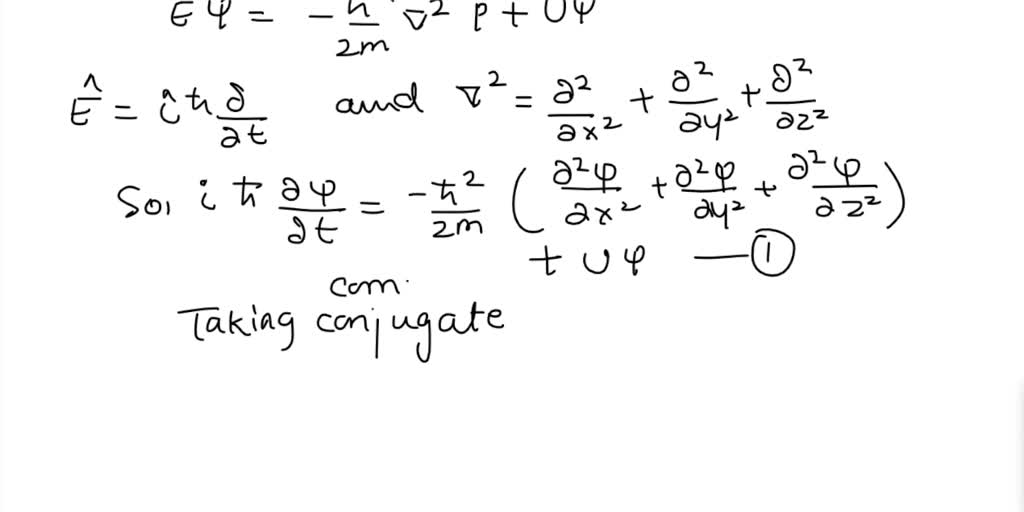 Eφ = -ħ/2m ∇² φ + Uφ
Ê = iħ ∂/∂t and ∇² = ∂²/∂x² + ∂²/∂y² + ∂²/∂z²
So, iħ ∂φ/∂t = -ħ²/2m (∂²φ/∂x² + ∂²φ/∂y² + ∂²φ/∂z²)
+ Uφ —①
com.
Taking conjugate